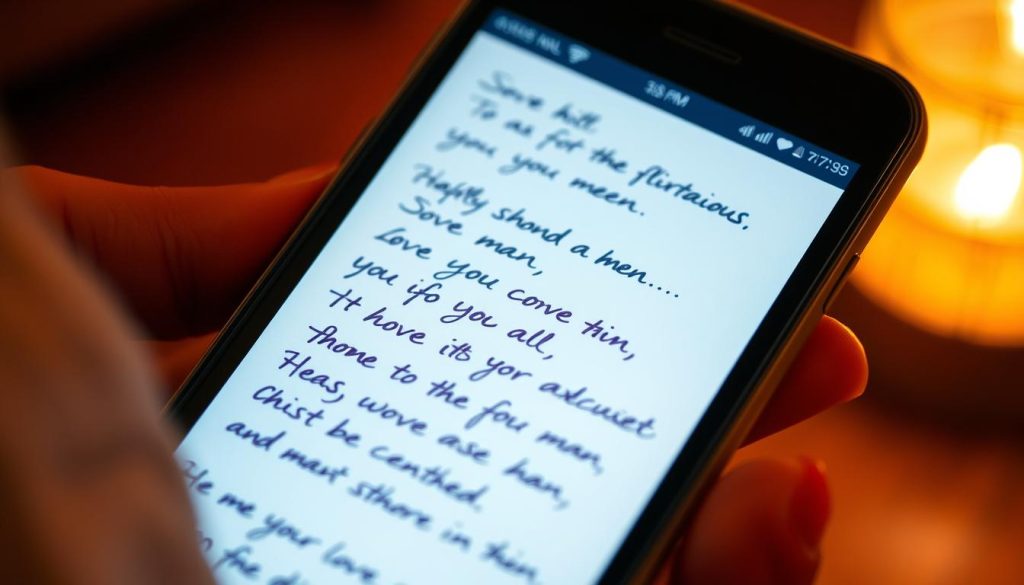 3:5 PM
77:99
Sove hill.
To as fot the flirtaious,
you you meen.
Haplly shond a hen....
Sove man,
Love you conve thin,
you ifo you all,
It hove it's yor axlcuiet
fhone to the fou man,
Heas, wove ase han,
Chist be centhed.
and man't sthore in thin
He me your love